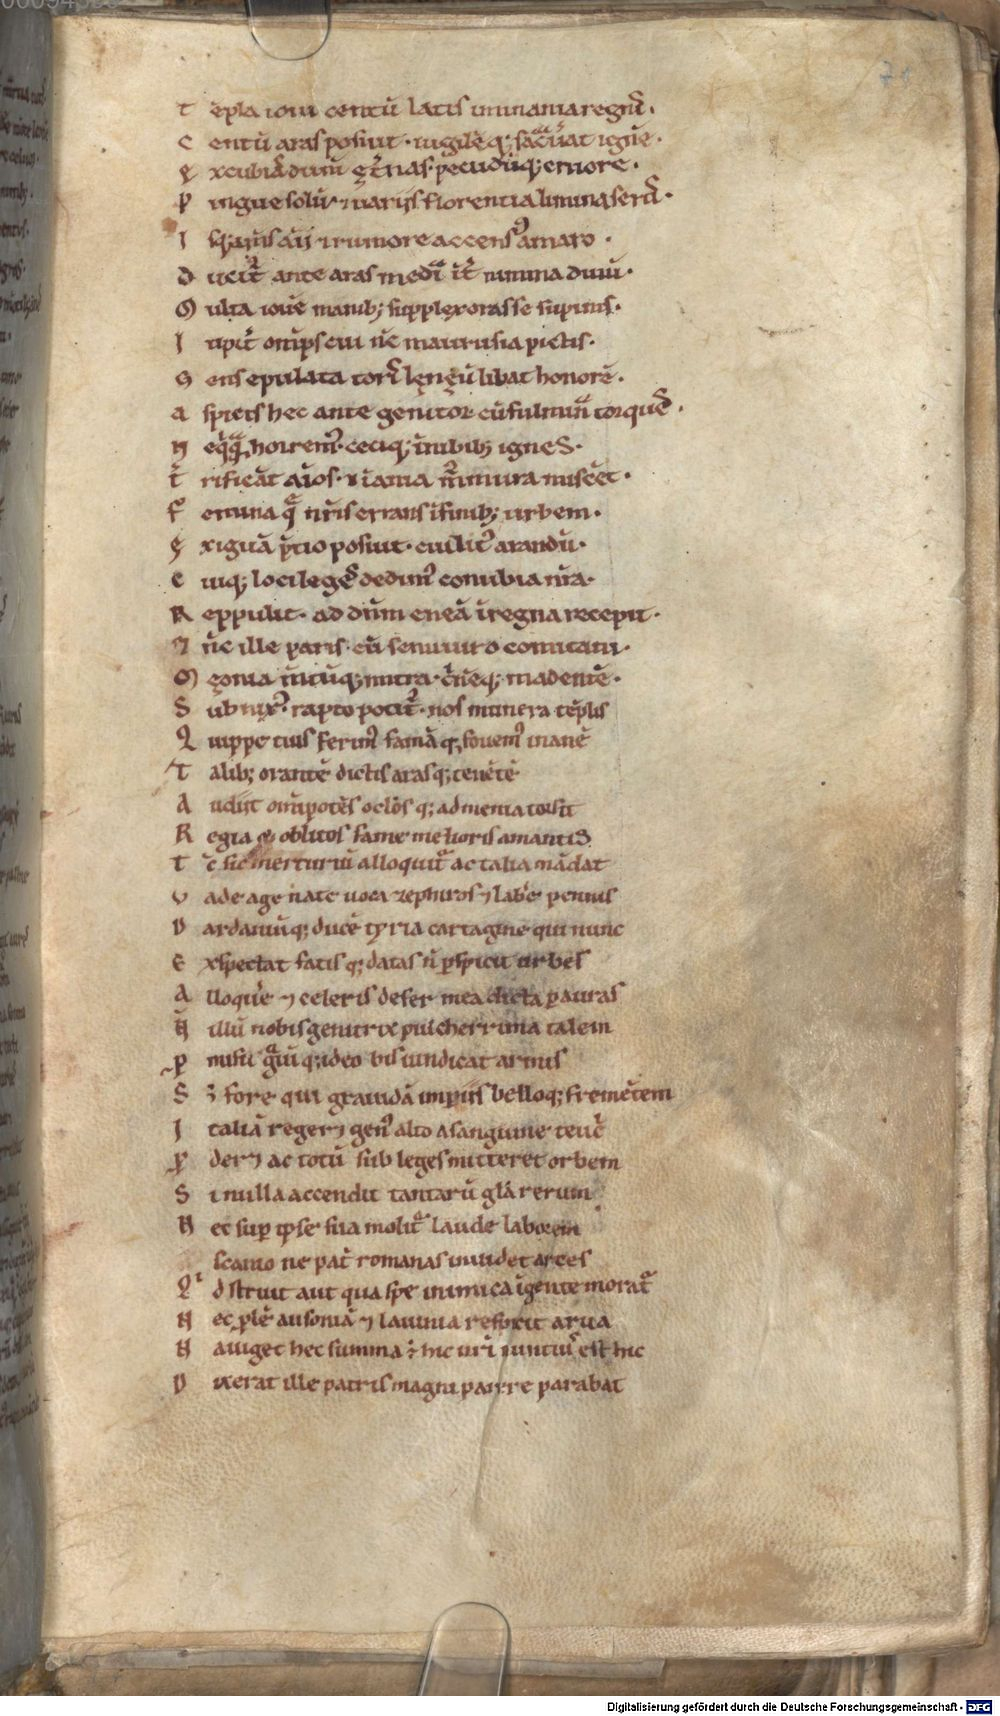 T ēpla ioui centū latis immania regnis.
C entū aras posuit. uigilēq; sacūat ignē.
E xcubias diuum ęt̄nas. pecudūq; cruore.
P ingue solū ⁊ uarijs florentia limina sertis.
I sq; am̄s aīi ⁊ rumore accensꝰ amaro.
D icit᷑ ante aras media īt̄ numina diuū.
M ulta iouē manib; supplex orasse supinis.
I upit̄ om̄ps cui nc̄ maurusia pictis.
G ens epulata toris lęnęū libat honorē.
A spicis hec ante genitor cū fulmina torques.
N eq̄qua horremꝰ. ceciq; in nubib; ignes.
T rificāt aīos. ⁊ īania mꝰmura miscēt.
F emina q̄ nr̄is errans ī finib; urbem.
E xiguā p̄tio posuit. cui litꝰ arandū.
C uiq; loci leges dedimꝰ conubia nr̄a.
R eppulit. ac dn̄m eneā ī regna recepit.
⁊ nc̄ ille paris. cū semiuiro comitatu.
M ęonia mentūq; mitra. c̄nēq; madentē.
S ubnixꝰ. rapto potit᷑. nos munera tēplis
Q uippe tuis ferimꝰ famā q; fouemꝰ inanē
T alib; orantē dictis arasq; tenētē
A udijt om̄ipotēs oclōs q; ad menia torsit
R egia & oblitos fame melioris amantis
T c̄ sic mercuriū alloquit᷑ ac talia mādat
V ade age nate uoca zephiros ⁊ labe pennis
D ardaniūq; ducē tyria cartagine qui nunc
E xspectat fatis q; datas n̄ pspicit urbes
A lloquē ⁊ celeris defer mea dicta p auras
N illū nobis genitrix pulcherrima talem
P misit graiū q; ideo bis uindicat armis
S ꝫ fore qui grauidā impiis belloq; fremētem
I taliā reger⁊ genꝰ alto a sanguine teuc̄
P der⁊ ac totū sub leges mitteret orbem
S i nulla accendit tantarū glā rerum
N ec sup ipse sua molit᷑ laude laborem
scanio ne pat̄ romanas inuidet arces
Q ͥ d struit aut qua spe inimica ī gente morat᷑
N ec plē ausoniā ⁊ lauinia respicit arua
N auiget hec summa ē hic nr̄i nuntiꝰ est hic
D ixerat ille patris magni parere parabat
Digitalisierung gefördert durch die Deutsche Forschungsgemeinschaft - DFG